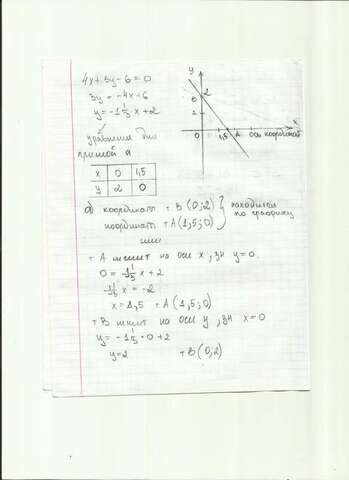 4x+3y-6=0
3y = -4x+6
y = -1⅓x+2
уравнение для
прямой a
x 0 1,5
y 2 0
y
2
1
0 1 1,5 A
x
координат т B (0;2) } находим
координат т A (1,5;0) } по графику
или
т A лежит на оси x, зн y=0
0 = 1⅓x + 2
1⅓x = -2
x = 1,5 т A (1,5;0)
т B лежит на оси y, зн x=0
y = -1⅓·0+2
y=2 т B (0;2)